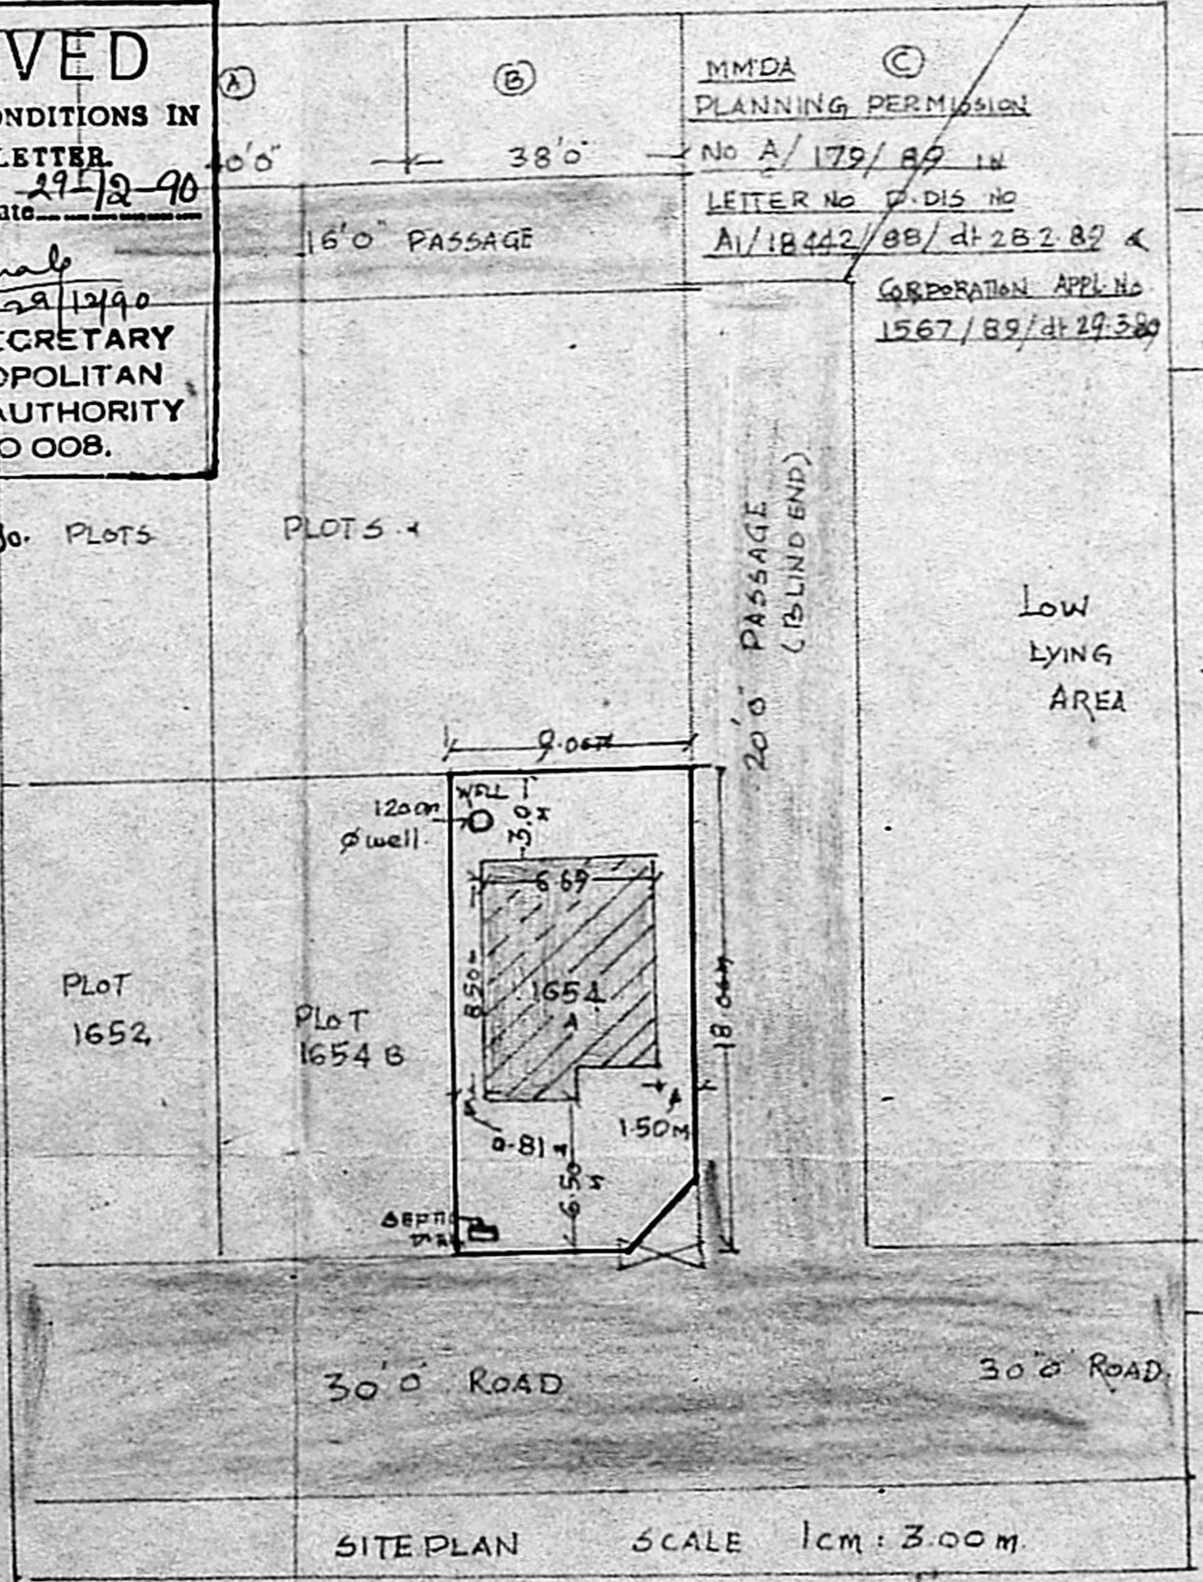 VED
ONDITIONS IN
LETTER.
29-12-90
29/12/90
ECRETARY
OPOLITAN
AUTHORITY
008.
A
B
C
0'0"
38'0"
MMDA
PLANNING PERMISSION
NO A/179/89 IN
LETTER NO D.DIS NO
A1/18442/88/dt 28.2.89 &
CORPORATION APPL. No.
1567/89/dt 29.3.89
16'0" PASSAGE
PLOTS
PLOTS
20'0" PASSAGE
(BLIND END)
LOW
LYING
AREA
9.06M
WELL
120cm
Ø well.
3.0 M
6.69
8.50M
1654
A
18.06M
PLOT
1652
PLOT
1654 B
0.81 M
1.50M
6.50 M
30'0" ROAD
30'0" ROAD.
SITE PLAN SCALE 1cm : 3.00 m.